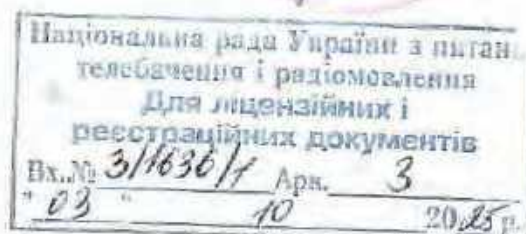 Національна рада України з питан
телебачення і радіомовлення
Для ліцензійних і
реєстраційних документів
Вх.№ 3/1636/1 Арк. 3
" 03 " 10 2025 р.